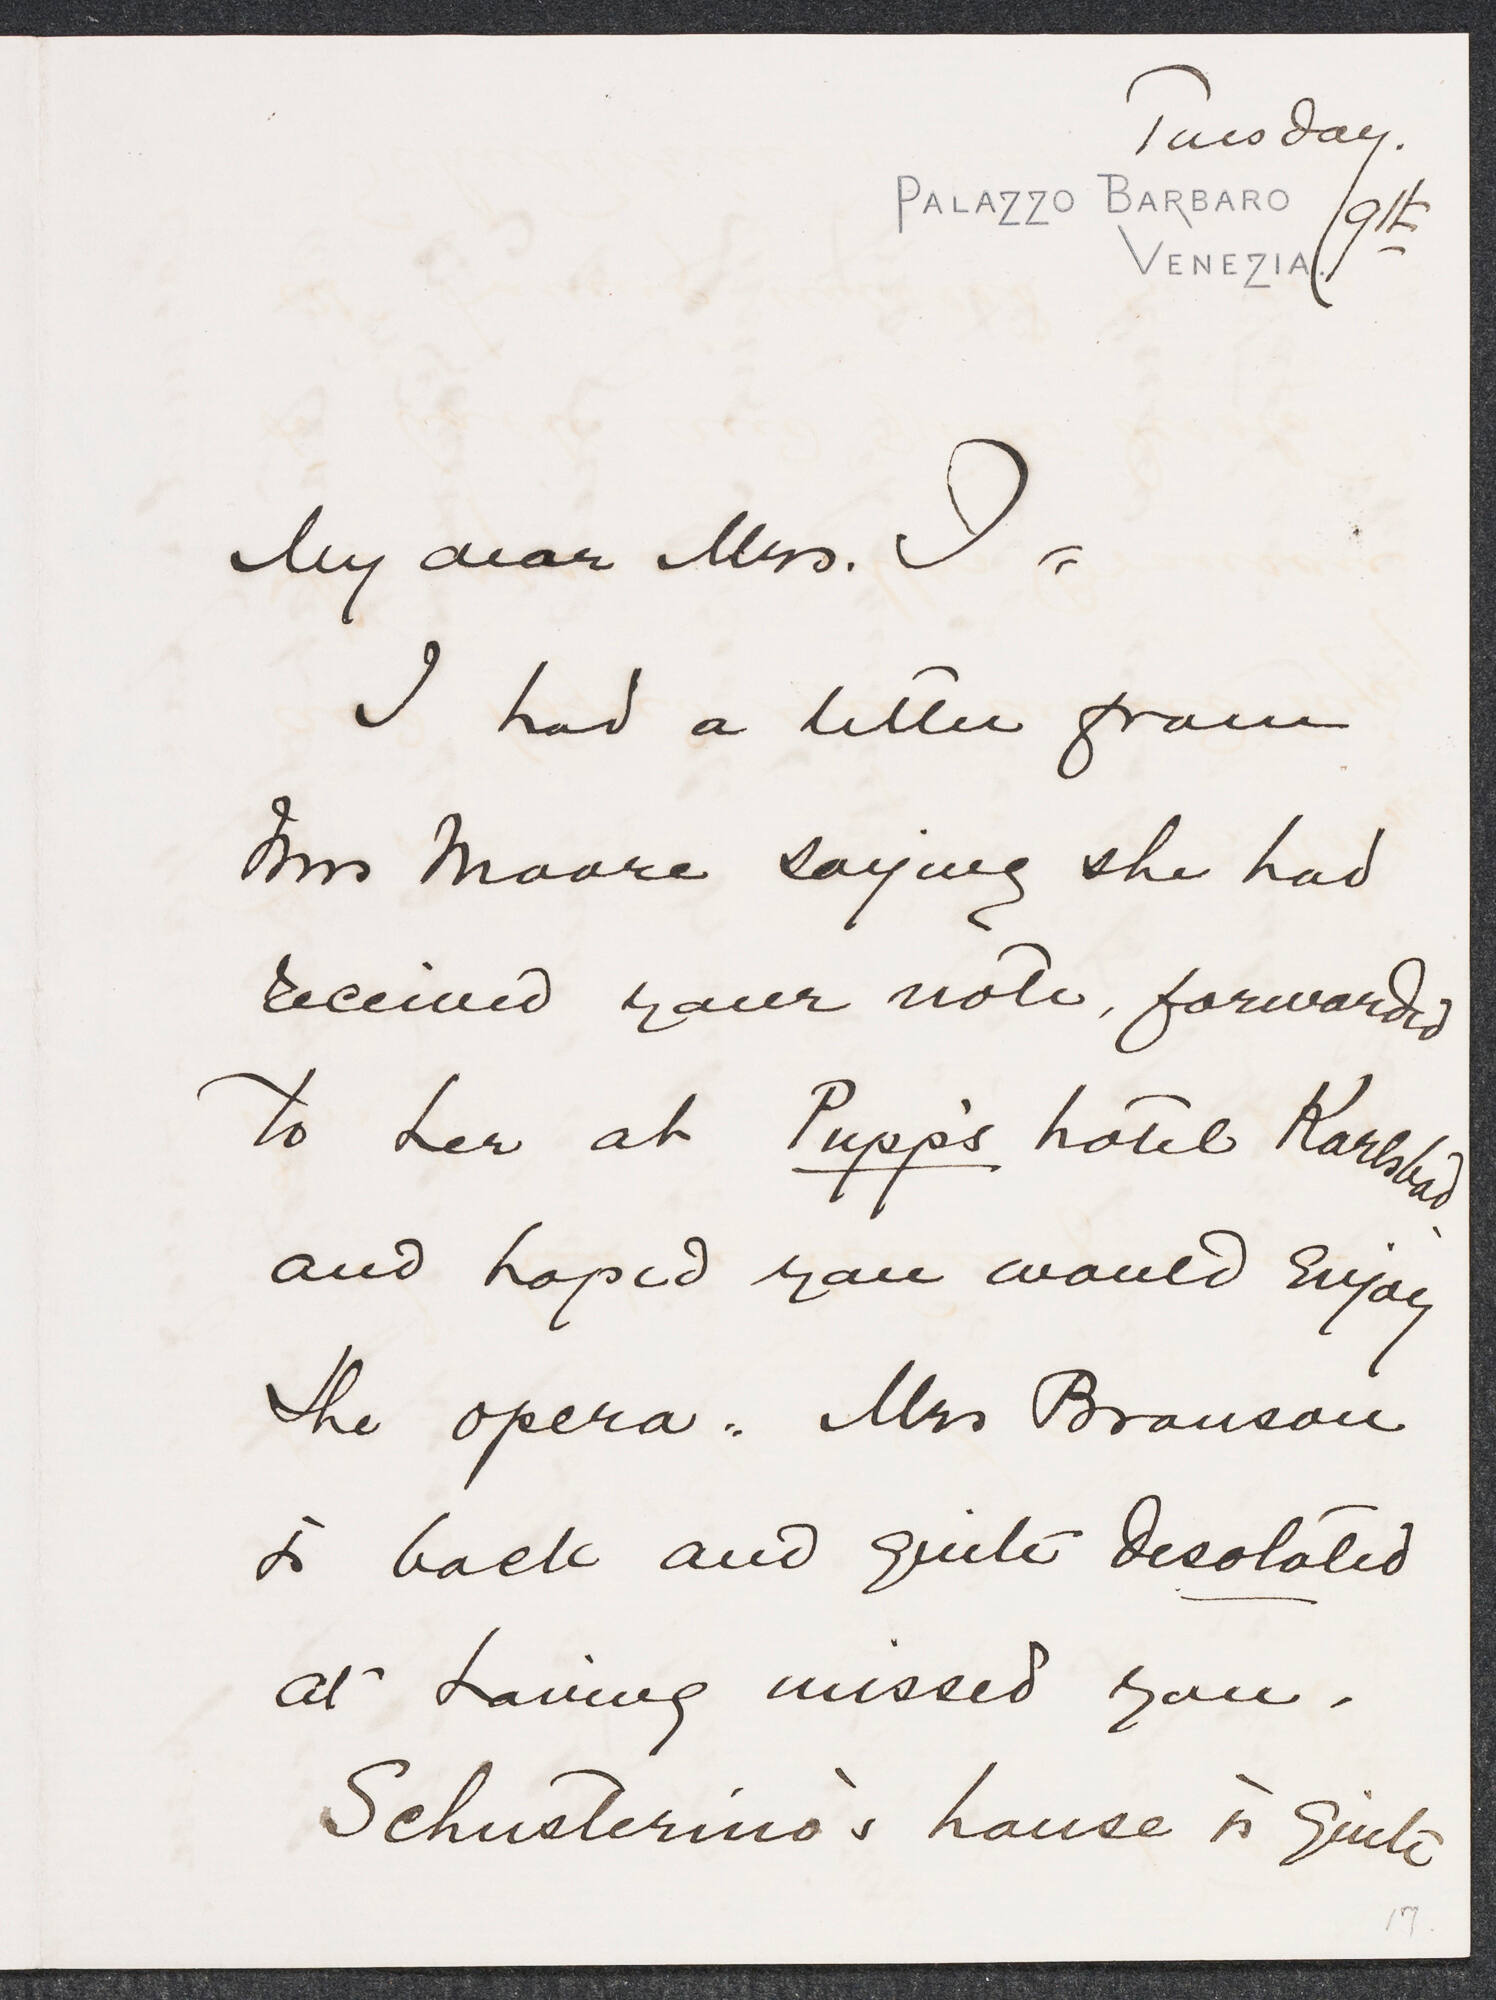 Tuesday.
PALAZZO BARBARO
9th
VENEZIA.
My dear Mrs. J -
I had a letter from
Mrs Moore saying she had
received your note, forwarded
to her at Pupp's hotel Karlsbad,
and hoped you would enjoy
the opera. Mrs Bronson
is back and quite desolated
at having missed you.
Schusterino's house is quite
17.